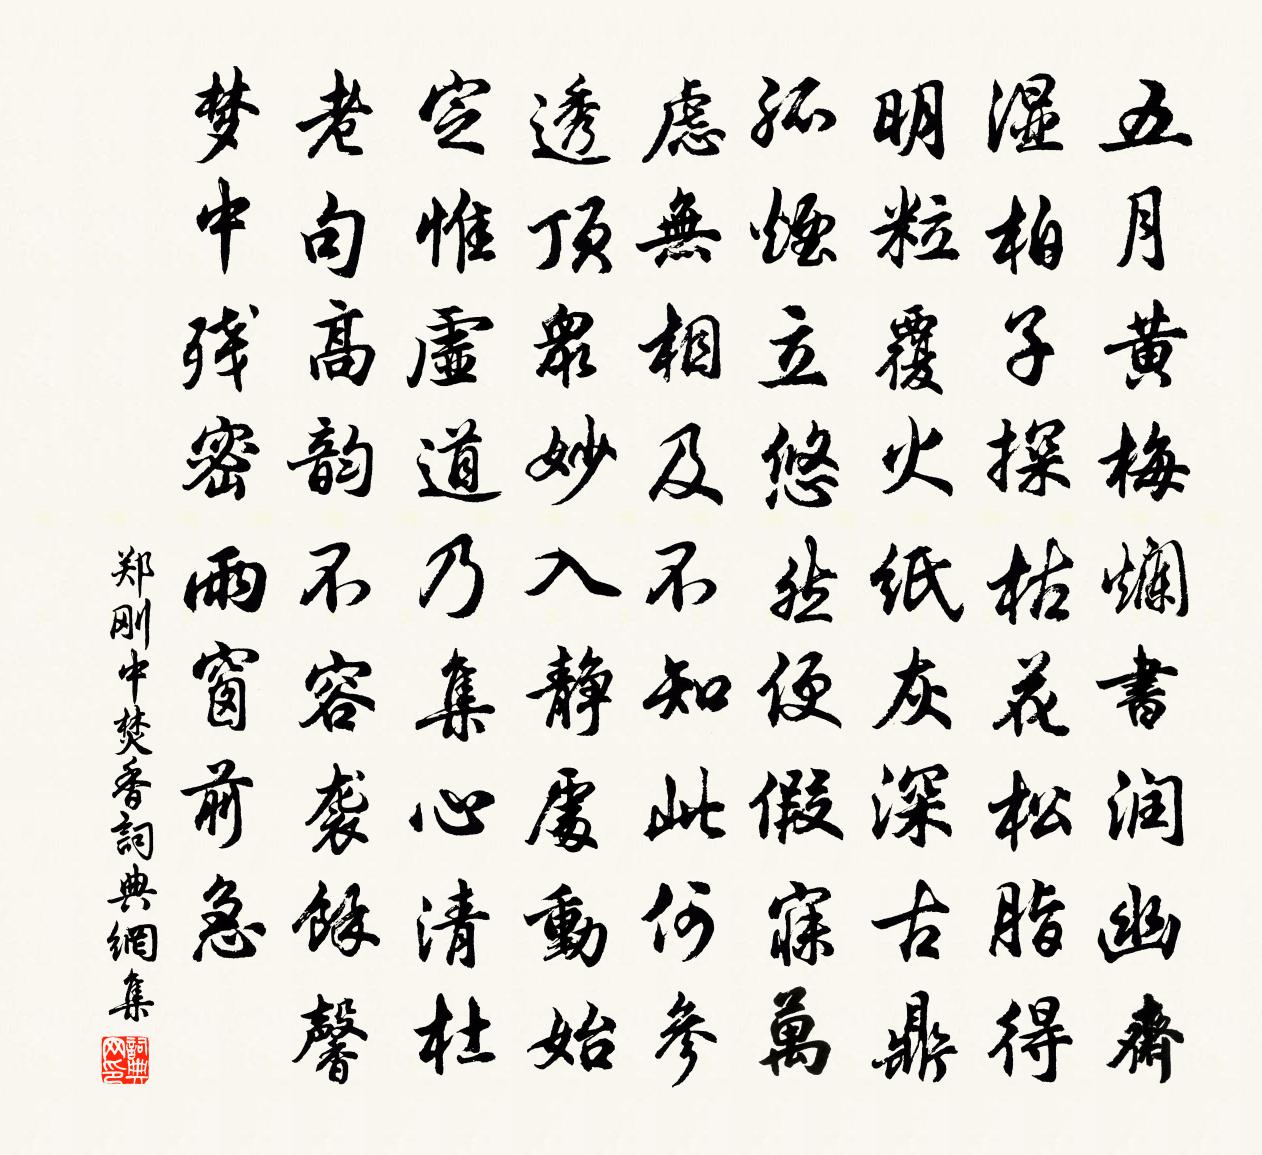 五月黄梅爛書润幽齋
湿柏子探枯花松脂得
明粒覆火纸灰深古鼎
孤煙立悠然便假寐萬
慮無相及不知此何參
透頂眾妙入静處動始
定惟虛道乃集心清杜
老句高韵不容袭餘馨
梦中残密雨窗前急
郑刚中焚香詞典網集
詞典网印